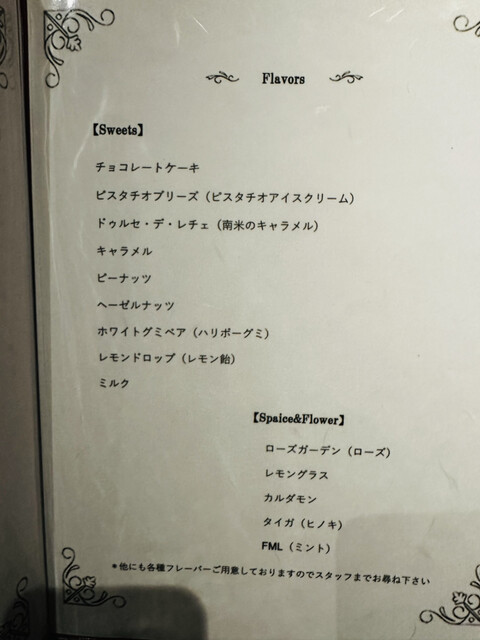 Flavors
【Sweets】
チョコレートケーキ
ピスタチオブリーズ（ピスタチオアイスクリーム）
ドゥルセ・デ・レチェ（南米のキャラメル）
キャラメル
ピーナッツ
ヘーゼルナッツ
ホワイトグミベア（ハリボーグミ）
レモンドロップ（レモン飴）
ミルク
【Spaice&Flower】
ローズガーデン（ローズ）
レモングラス
カルダモン
タイガ（ヒノキ）
FML（ミント）
＊他にも各種フレーバーご用意しておりますのでスタッフまでお尋ね下さい